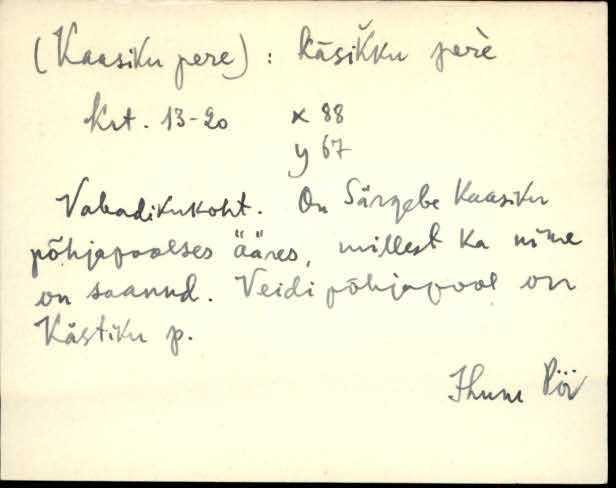 (Kaasiku pere) : kāsik̆ku perè
krt. 13-20 x 88
y 67
Vabadikukoht. On Särgebe Kaasiku
põhjapoolses ääres, millest ka nime
on saanud. Veidi põhjapool on
Kästiku p.